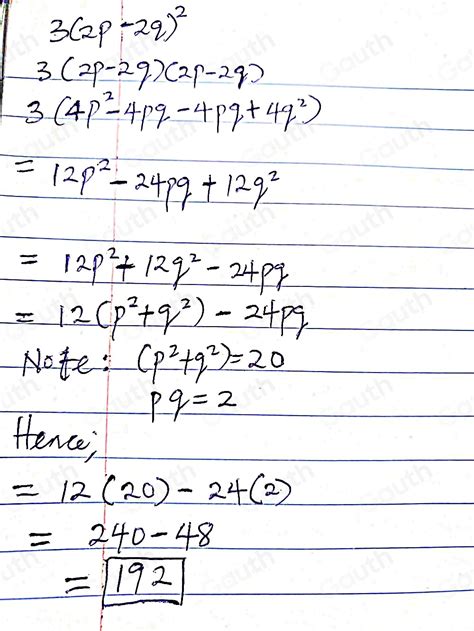 3(2p-2q)²
3(2p-2q)(2p-2q)
3(4p²-4pq-4pq+4q²)
= 12p²-24pq+12q²
= 12p²+12q²-24pq
= 12(p²+q²)-24pq
Note: (p²+q²)=20
pq=2
Hence;
= 12(20)-24(2)
= 240-48
= 192